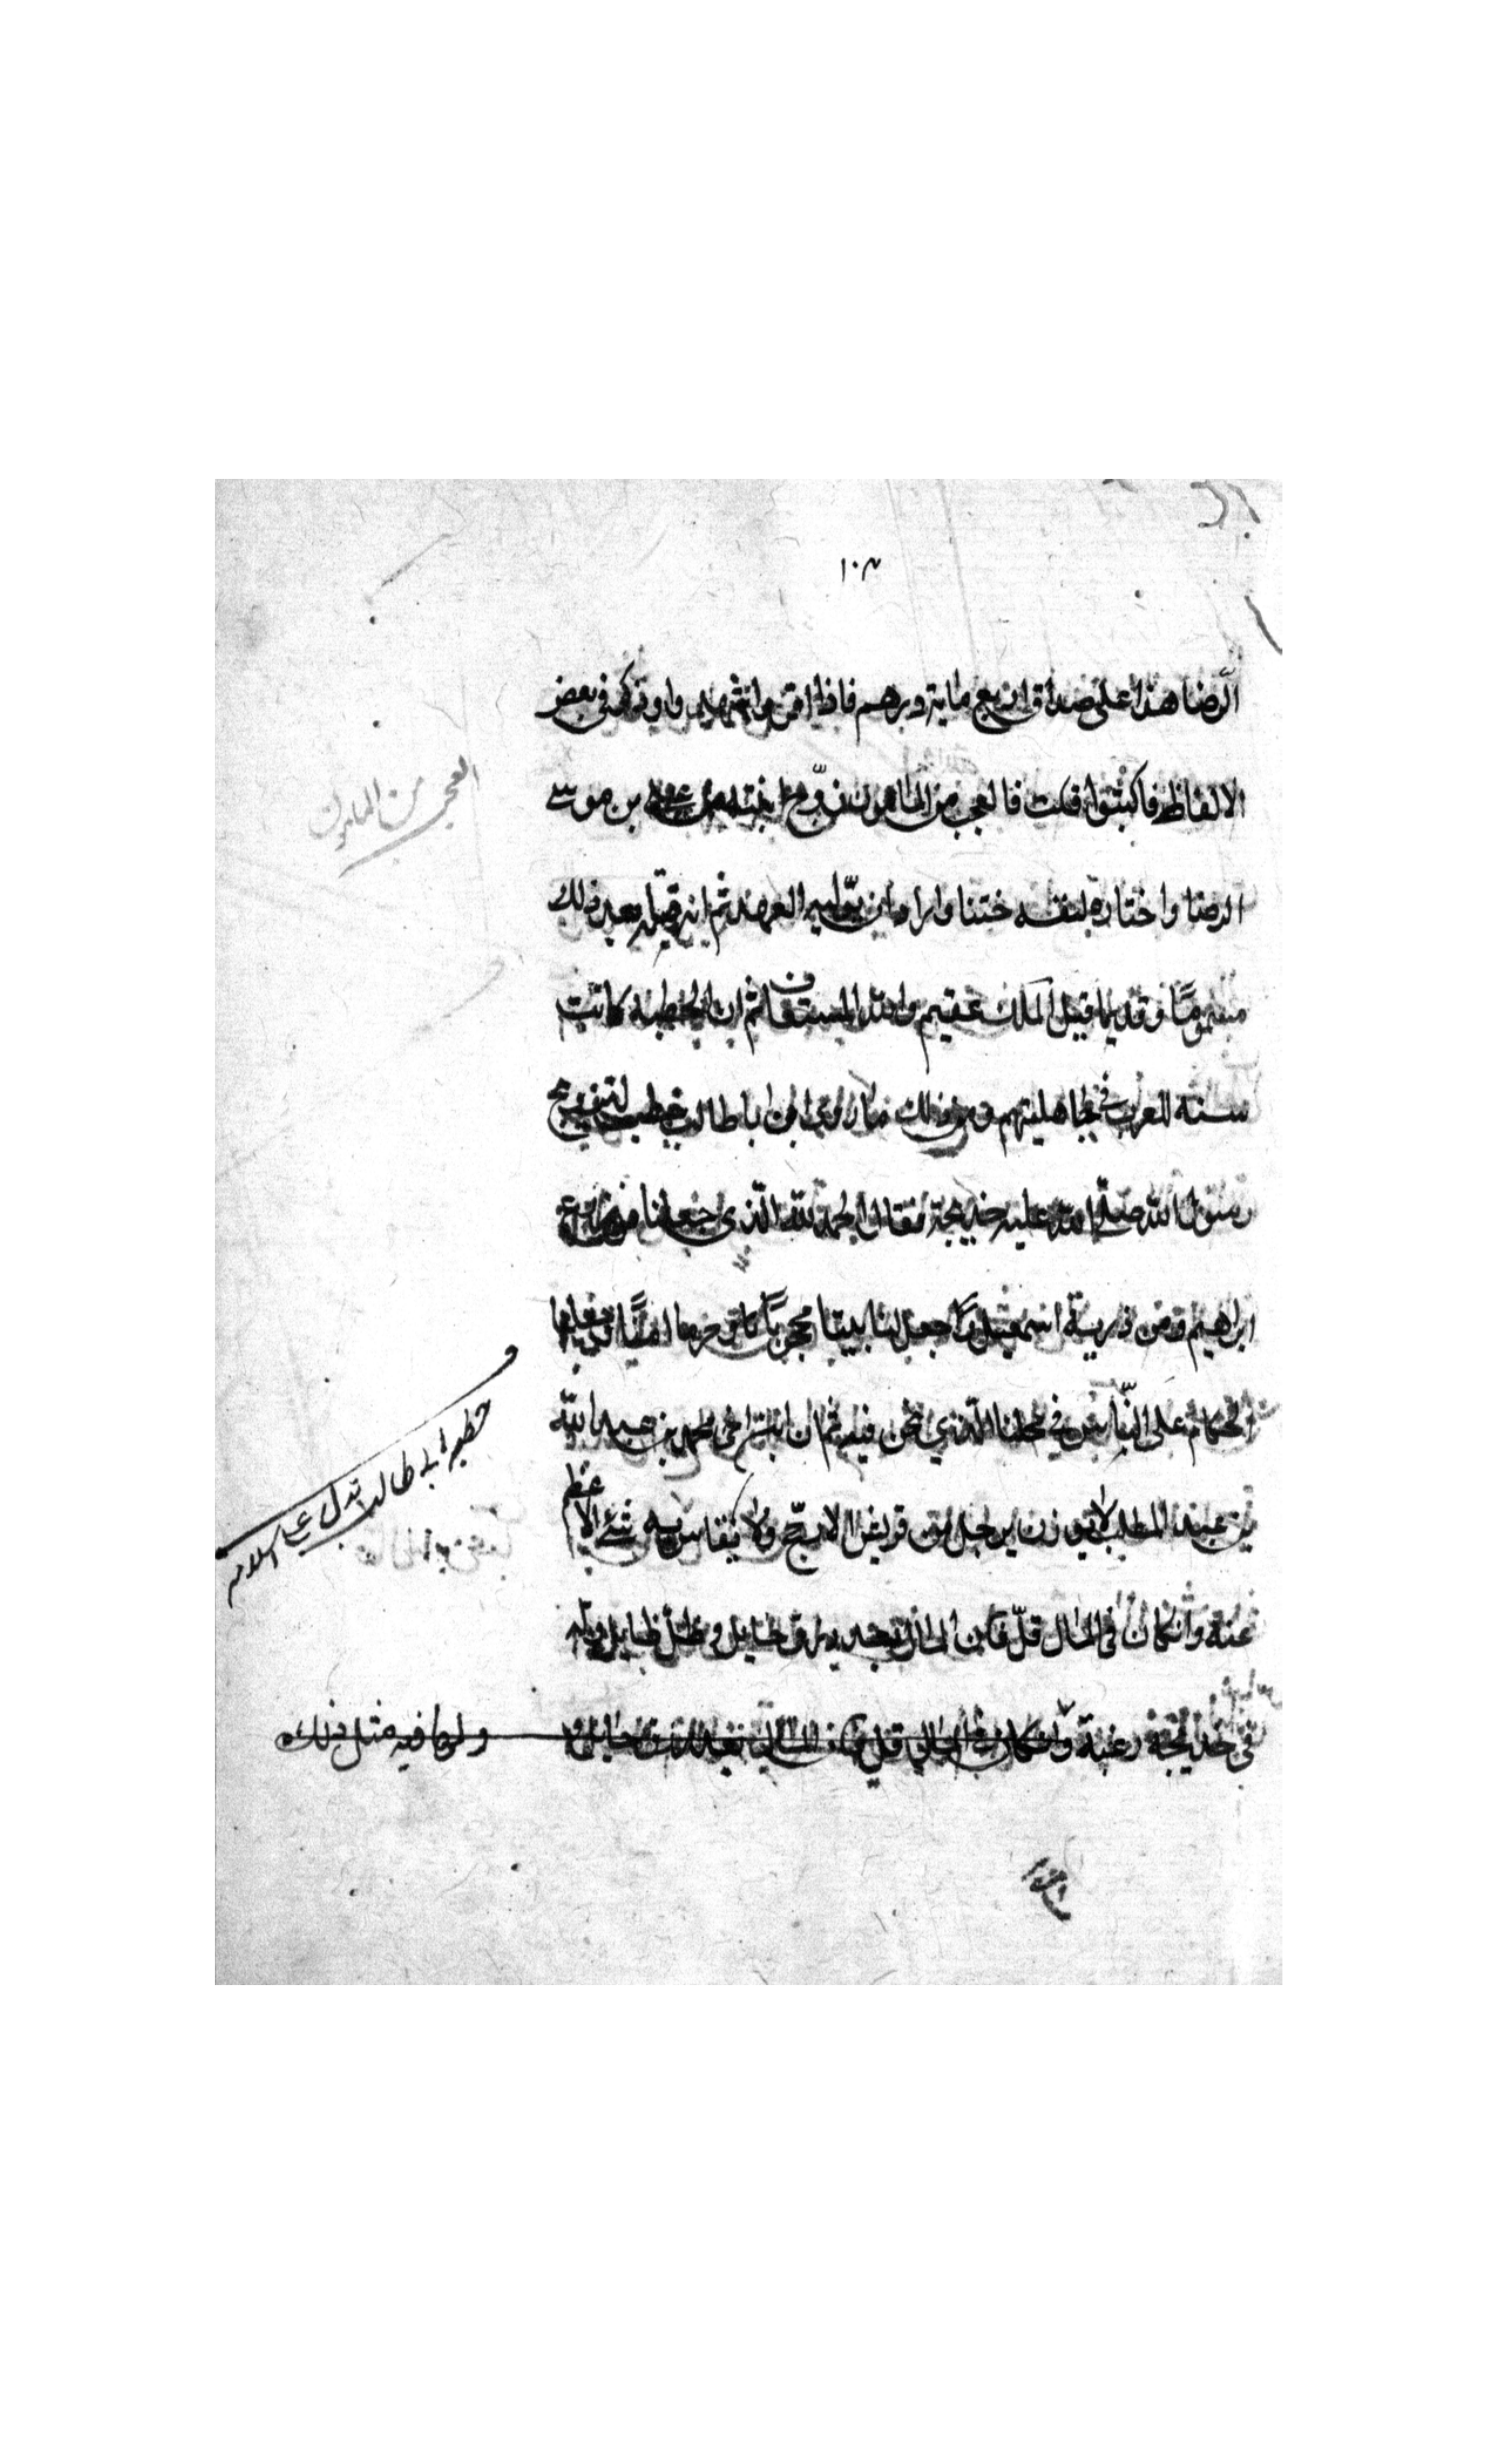 ١٠٣
الرضا هذا على صداق اربع ماية درهم فاذا في بعض
الالفاظ فاكتبوا قلت فالعجب من المامون زوج ابنته بن موسى
الرضا واختاره لنفسه ختنا واراد ان يوليه العهد ثم انه قتله بعد ذلك
مسموما وقديما قيل الملك عقيم والله المستعان ثم ان الخطبة كانت
سنة العرب في جاهليتهم ومن ذلك ما روى ان ابا طالب خطب لتزويج
رسول الله صلى الله عليه خديجة فقال الحمد لله الذي جعلنا من زرع
ابراهيم ومن ذرية اسمعيل وجعل لنا بيتا محجوبا وحرما امنا وجعلنا
الحكام على الناس في محلنا الذي نحن فيه ثم ان ابن اخي محمد بن عبد الله
بن عبد المطلب لا يوزن برجل من قريش الا رجح ولا يقاس به شئ الا عظم
عنه وان كان في المال قل فان المال رزق حايل وظل زايل وله
في خديجة رغبة ولها فيه مثل ذلك
العجب من المامون
خطبة ابي طالب تدل على اسلامه